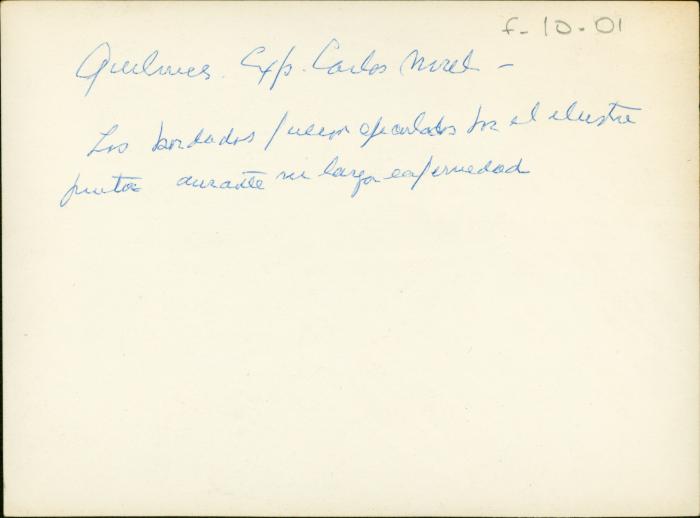 f-10-01
Quilmes. Exp. Carlos Morel -
Los bordados fueron ejecutados por el ilustre
pintor durante su larga enfermedad